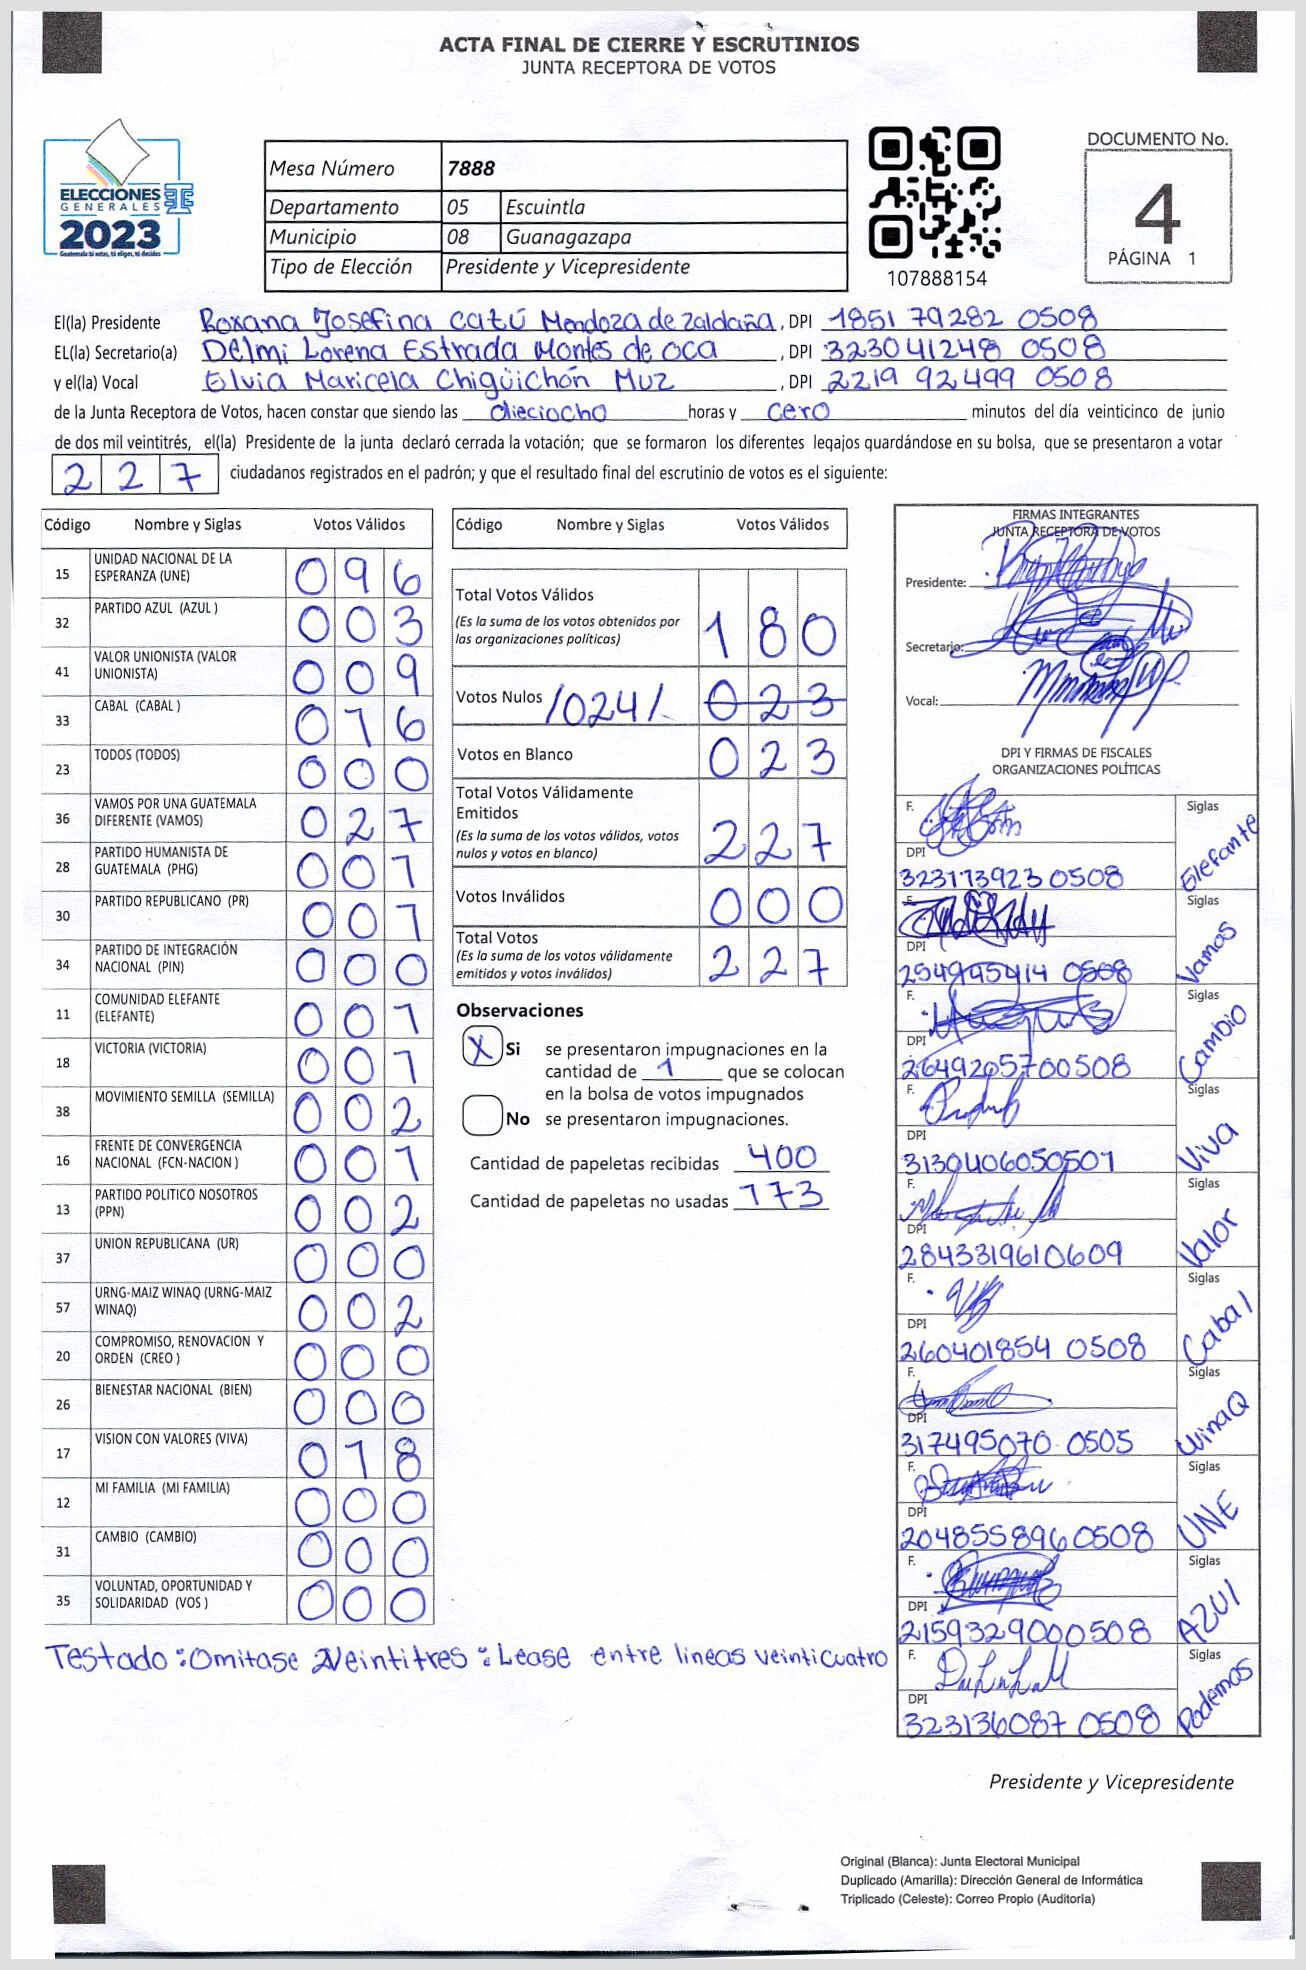 ACTA FINAL DE CIERRE Y ESCRUTINIOS
JUNTA RECEPTORA DE VOTOS
ELECCIONES
GENERALES
2023
Guatemala tú votas, tú eliges, tú decides
Mesa Número 7888
Departamento 05 Escuintla
Municipio 08 Guanagazapa
Tipo de Elección Presidente y Vicepresidente
107888154
DOCUMENTO No.
4
PÁGINA 1
El(la) Presidente Roxana Josefina Catú Mendoza de Zaldaña, DPI 1851 79282 0508
EL(la) Secretario(a) Delmi Lorena Estrada Montes de Oca, DPI 323041248 0508
y el(la) Vocal Elvia Maricela Chigüichón Muz, DPI 2219 92499 0508
de la Junta Receptora de Votos, hacen constar que siendo las dieciocho horas y cero minutos del día veinticinco de junio
de dos mil veintitrés, el(la) Presidente de la junta declaró cerrada la votación; que se formaron los diferentes legajos guardándose en su bolsa, que se presentaron a votar
227 ciudadanos registrados en el padrón; y que el resultado final del escrutinio de votos es el siguiente:
Código Nombre y Siglas Votos Válidos
15 UNIDAD NACIONAL DE LA ESPERANZA (UNE) 096
32 PARTIDO AZUL (AZUL ) 003
41 VALOR UNIONISTA (VALOR UNIONISTA) 009
33 CABAL (CABAL ) 016
23 TODOS (TODOS) 000
36 VAMOS POR UNA GUATEMALA DIFERENTE (VAMOS) 027
28 PARTIDO HUMANISTA DE GUATEMALA (PHG) 001
30 PARTIDO REPUBLICANO (PR) 001
34 PARTIDO DE INTEGRACIÓN NACIONAL (PIN) 000
11 COMUNIDAD ELEFANTE (ELEFANTE) 001
18 VICTORIA (VICTORIA) 001
38 MOVIMIENTO SEMILLA (SEMILLA) 002
16 FRENTE DE CONVERGENCIA NACIONAL (FCN-NACION ) 001
13 PARTIDO POLITICO NOSOTROS (PPN) 002
37 UNION REPUBLICANA (UR) 000
57 URNG-MAIZ WINAQ (URNG-MAIZ WINAQ) 002
20 COMPROMISO, RENOVACION Y ORDEN (CREO ) 000
26 BIENESTAR NACIONAL (BIEN) 000
17 VISION CON VALORES (VIVA) 018
12 MI FAMILIA (MI FAMILIA) 000
31 CAMBIO (CAMBIO) 000
35 VOLUNTAD, OPORTUNIDAD Y SOLIDARIDAD (VOS ) 000
Testado : Omitase Veintitres : Lease entre lineas veinticuatro
Código Nombre y Siglas Votos Válidos
Total Votos Válidos 180
(Es la suma de los votos obtenidos por
las organizaciones políticas)
Votos Nulos /024/. 023
Votos en Blanco 023
Total Votos Válidamente
Emitidos 227
(Es la suma de los votos válidos, votos
nulos y votos en blanco)
Votos Inválidos 000
Total Votos 227
(Es la suma de los votos válidamente
emitidos y votos inválidos)
Observaciones
X Si se presentaron impugnaciones en la
cantidad de 1 que se colocan
en la bolsa de votos impugnados
No se presentaron impugnaciones.
Cantidad de papeletas recibidas 400
Cantidad de papeletas no usadas 173
FIRMAS INTEGRANTES
JUNTA RECEPTORA DE VOTOS
Presidente:
Secretario:
Vocal:
DPI Y FIRMAS DE FISCALES
ORGANIZACIONES POLÍTICAS
F. Siglas Elefante
DPI
323173923 0508
F. Siglas Vamos
DPI
254995414 0508
F. Siglas Cambio
DPI
2649205700508
F. Siglas Viva
DPI
3130406050501
F. Siglas Valor
DPI
2843319610609
F. Siglas Cabal
DPI
260401854 0508
F. Siglas WinaQ
DPI
317495070 0505
F. Siglas UNE
DPI
204855896 0508
F. Siglas AZUl
DPI
2159329000508
F. Siglas Podemos
DPI
323136087 0508
Presidente y Vicepresidente
Original (Blanca): Junta Electoral Municipal
Duplicado (Amarilla): Dirección General de Informática
Triplicado (Celeste): Correo Propio (Auditoría)